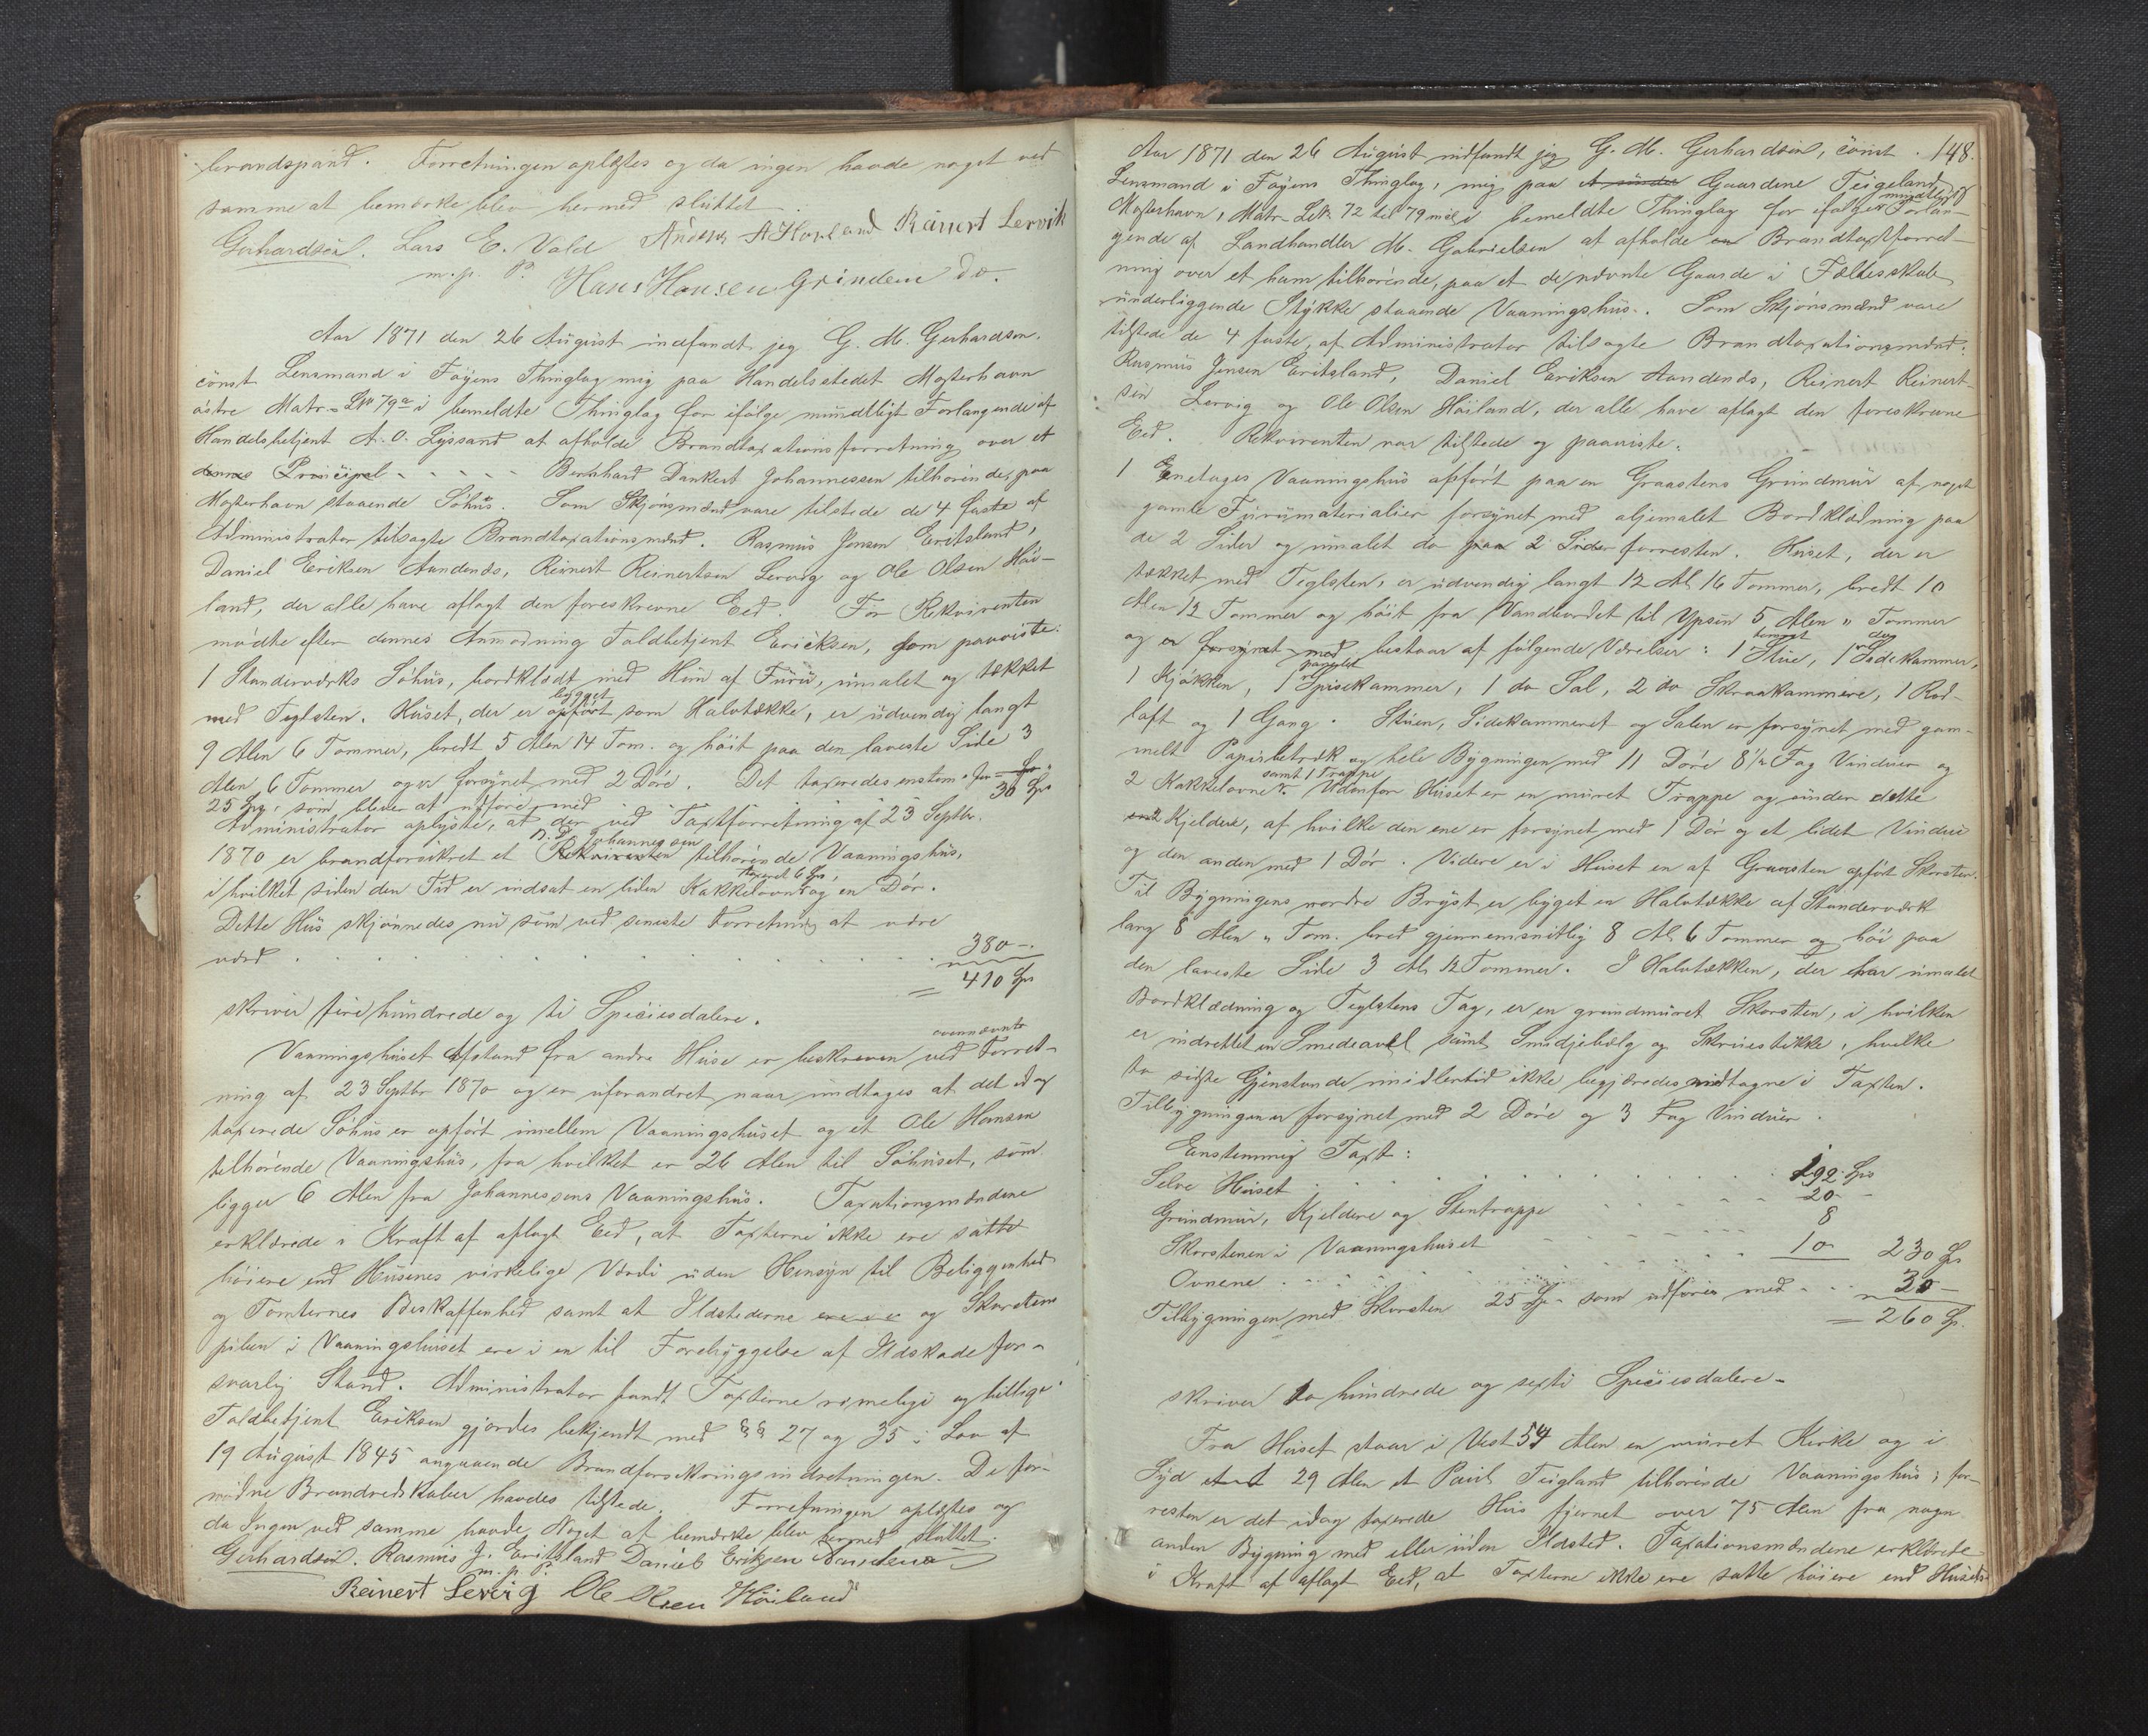 brandspand. Forretningen oplæstes og da ingen havde noget ved
samme at bemærke blev hermed sluttet.
Gerhardsen. Lars E. Vold Anders A Hovland Reinert Lervik
m. p. P. Hans Hansen Grindem do.
Aar 1871 den 26 August indfandt jeg G. M. Gerhardsen,
const. Lensmand i Føyens Thinglag mig paa Handelsstedet Mosterhavn
østre Matr. L№ 79a i bemeldte Thinglag for ifølge mundtligt Forlangende af
Handelsbetjent A. O. Lyssand at afholde Brandtaxationsforretning over et
dennes Principal - - - - - Bernhard Dankert Johannessen tilhørende, paa
Mosterhavn staaende Søhus. Som Skjønsmænd vare tilstede de 4 faste af
Administrator tilsagte Brandtaxationsmænd. Rasmus Jensen Eritsland,
Daniel Eriksen Aandends, Reinert Reinertsen Lervig og Ole Olsen Høi-
land, der alle have aflagt den foreskrevne Eed. For Rekvirenten
mødte efter dennes Anmodning Toldbetjent Ericksen, som paaviste:
1 Standerværks Søhus, bordklædt med Hun af Furu, umalet og tækket
med Teglsten. Huset, der er opført bygget som Halvtække, er udvendig langt
9 Alen 6 Tommer, bredt 5 Alen 14 Tom. og høit paa den laveste Side 3
Alen 6 Tommer og er forsynet med 2 Døre. Det taxeredes enstem. for
25 Sp, som bliver at udføre med 30 Sp
Administrator oplyste, at der ved Taxtforretning af 23 Septbr.
1870 er brandforsikret et Rekvirenten B. D. Johannessen tilhørende Vaaningshus,
i hvilket siden den Tid er indsat en liden Kakkelovn taxeret 6 Sp, og en Dør.
Dette Hus skjønnedes nu som ved seneste Forretning at være
værd . . . . . . . . . . 380 -
= 410 Sp
skriver fire hundrede og ti Speciesdalere.
Vaaningshuset Afstand fra andre Huse er beskreven ved ovennævnte Forret-
ning af 23 Septbr 1870 og er uforandret naar undtages at det idag
taxerede Søhus er opført imellem Vaaningshuset og et Ole Hansen
tilhørende Vaaningshus, fra hvilket er 26 Alen til Søhuset, som
ligger 6 Alen fra Johannessens Vaaningshus. Taxationsmændene
erklærede i Kraft af aflagt Eed, at Taxterne ikke ere satte
høiere end Husenes virkelige Værdi uden Hensyn til Beliggenhed
og Tomternes Beskaffenhed samt at Ildstederne og Skorstens
piben i Vaaningshuset ere i en til Forebyggelse af Ildskade for-
svarlig Stand. Administrator fandt Taxterne rimelige og billige.
Toldbetjent Eriksen gjordes bekjendt med §§ 27 og 35 i Lov af
19 August 1845 angaaende Brandforsikringsindretningen. De for-
nødne Brandredskaber havdes tilstede. Forretningen oplæstes og
da Ingen ved samme havde Noget at bemærke blev hermed sluttet.
Gerhardsen. Rasmus J. Eritsland Daniel Eriksen Aandends
m. p. P.
Reinert Lervig Ole Olsen Høiland
148.
Aar 1871 den 26 August indfandt jeg G. M. Gerhardsen, const.
Lensmand i Føyens Thinglag, mig paa Gaardene Teigeland
Mosterhavn, Matr. L№ 72 til 79 incl. i bemeldte Thinglag for ifølge mundtligt Forlan-
gende af Landhandler M. Gabrielsen at afholde en Brandtaxtforret-
ning over et ham tilhørende, paa et de nævnte Gaarde i Fællesskab
underliggende Stykke staaende Vaaningshus. Som Skjønsmænd vare
tilstede de 4 faste, af Administrator tilsagte Brandtaxationsmænd:
Rasmus Jensen Eritsland, Daniel Eriksen Aandends, Reinert Reinert-
sen Lervig og Ole Olsen Høiland, der alle have aflagt den foreskrevne
Eed. Rekvirenten var tilstede og paaviste:
1 Enetages Vaaningshus opført paa en Graastens Grundmur af noget
gamle Furumaterialier forsynet med oljemalet Bordklædning paa
de 2 Sider og umalet do paa 2 Sider forresten. Huset, der er
tækket med Teglsten, er udvendig langt 12 Al. 16 Tommer, bredt 10
Alen 12 Tommer og høit fra Vandbordet til Ypsen 5 Alen " Tommer
og er forsynet med bestaar af følgende Værelser: 1 Stue, 1 do Sidekammer,
1 Kjøkken, 1 panelet Spisekammer, 1 do Sal, 2 do Skraakammere, 1 Rød-
loft og 1 Gang. Stuen, Sidekammeret og Salen er forsynet med gam-
melt Papirbetræk og hele Bygningen med 11 Døre 8 1/2 Fag Vinduer og
2 Kakkelovner samt 1 Trappe. Udenfor Huset er en muret Trappe og under dette
2 Kjeldere, af hvilke den ene er forsynet med 1 Dør og et lidet Vindue
og den anden med 1 Dør. Videre er i Huset en af Graasten opført Skorsten.
Til Bygningens nordre Bryst er bygget en Halvtække af Standerværk
lang 8 Alen " Tom. bred gjennemsnitlig 8 Al. 6 Tommer og høi paa
den laveste Side 3 Al. 12 Tommer. I Halvtækken, der har umalet
Bordklædning og Teglstens Tag, er en grundmuret Skorsten, i hvilken
er indrettet en Smedeavl samt Smidjebælg og Skruestikke, hvilke
to sidste Gjenstande imidlertid ikke begjæredes medtagne i Taxten.
Tilbygningen er forsynet med 2 Døre og 3 Fag Vinduer.
Eenstemmig Taxt:
Selve Huset . . . . . . . . 192 Sp
Grundmur, Kjeldere og Stentrappe - - - 20 -
Skorstenen i Vaaningshuset - - - 8
Ovnene . . . . . . 10 230 Sp
Tilbygningen med Skorsten 25 Sp. som udføres med - - 30 -
= 260 Sp.
skriver to hundrede og sexti Speciesdalere.
Fra Huset staar i Vest 54 Alen en muret Kirke og i
Syd 29 Alen et Paul Teigland tilhørende Vaaningshus; for-
resten er det idag taxerede Hus fjernet over 75 Alen fra nogen
anden Bygning med eller uden Ildsted. Taxationsmændene erklærede
i Kraft af aflagt Eed, at Taxterne ikke ere satte høiere end Husets